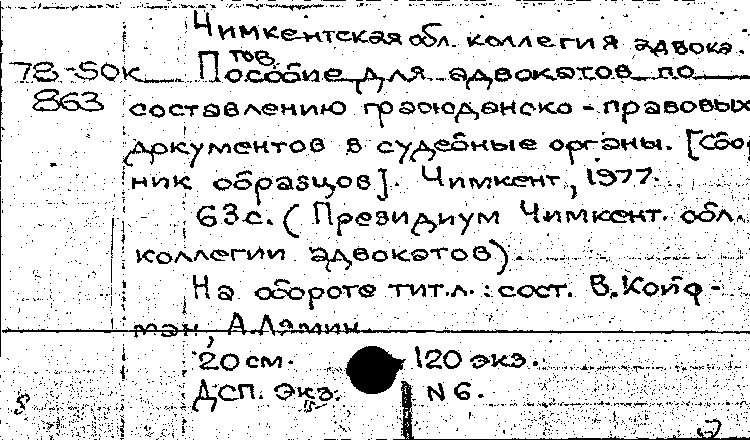 Чимкентская обл. коллегия адвока.
тов.
78-50к Пособие для адвокатов по
863 составлению гражданско-правовых
документов в судебные органы. [Сбор
ник образцов]. Чимкент, 1977.
63с. (Президиум Чимкент. обл.
коллегии адвокатов).
На обороте тит.л.: сост. В. Койф-
ман, А. Лямин
20 см. 120 экз.
ДСП. Экз. N 6.